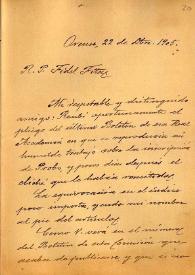 20
Orense, 22 de Dbre. 1905.
R. P. Fidel Fita
Mi respetable y distinguido
amigo: Recibí oportunamente el
pliego del último Boletín de esa Real
Academia en que se reproducía mi
humilde trabajo sobre la inscripción
de Probo, y pocos días después el
cliché que le había remitido.
La equivocación en el índice
poco importa, yendo mi nombre
al pie del artículo.
Como V. verá en el número
del Boletín de esta Comisión que
acaba de publicarse, y que si no